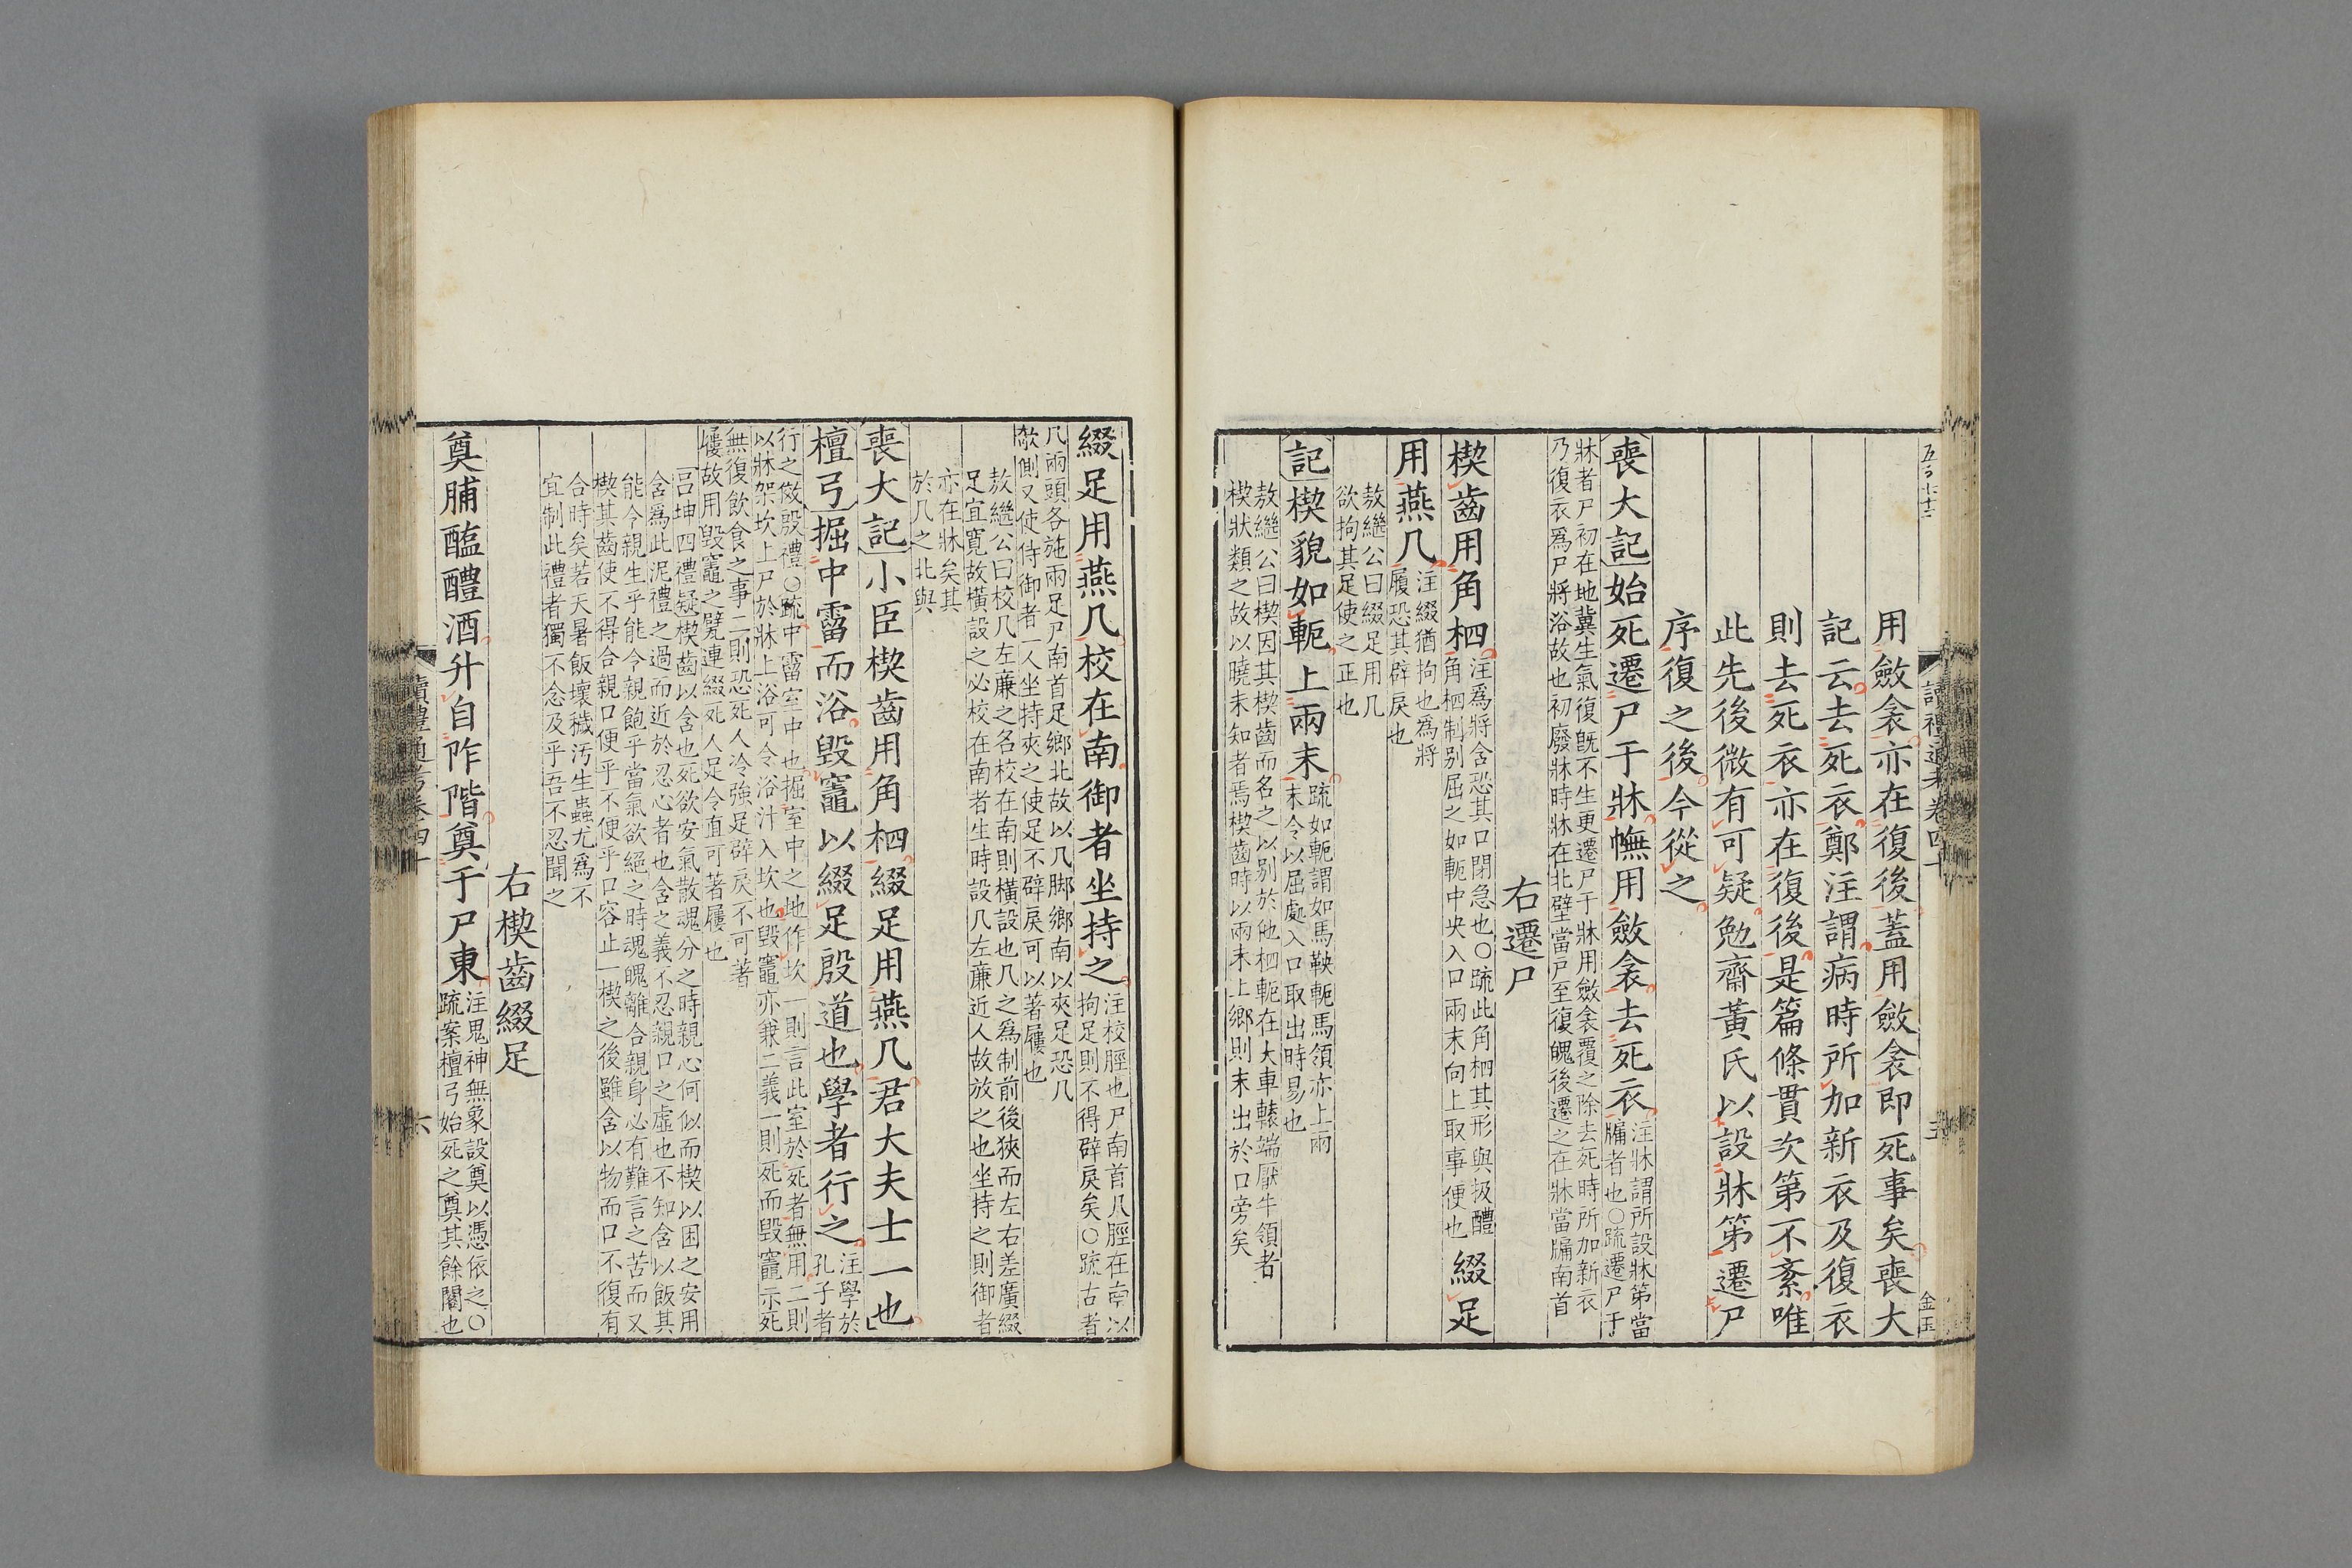 五百七十三
讀禮通考卷四十
五
金玉
用斂衾亦在復後蓋用斂衾即死事矣喪大
記云去死衣鄭注謂病時所加新衣及復衣
則去死衣亦在復後是篇條貫次第不紊唯
此先後微有可疑勉齋黃氏以設牀第遷尸
序復之後今從之
喪大記始死遷尸于牀幠用斂衾去死衣
注牀謂所設牀第當
牖者也○疏遷尸于
牀者尸初在地冀生氣復旣不生更遷尸于牀用斂衾覆之除去死時所加新衣
乃復衣爲尸將浴故也初廢牀時牀在北壁當戸至復魄後遷之在牀當牖南首
右遷尸
楔齒用角柶
注爲將含恐其口閉急也○疏此角柶其形與扱醴
角柶制别屈之如軛中央入口兩末向上取事便也
綴足
用燕几
注綴猶拘也爲將
屨恐其辟戾也
敖繼公曰綴足用几
欲拘其足使之正也
記楔貌如軛上兩末
疏如軛謂如馬鞅軛馬領亦上兩
末令以屈處入口取出時易也
敖繼公曰楔因其楔齒而名之以别於他柶軛在大車轅端厭牛領者
楔狀類之故以曉未知者焉楔齒時以兩末上鄉則末出於口旁矣
綴足用燕几校在南御者坐持之
注校脛也尸南首几脛在南以
拘足則不得辟戾矣○疏古者
几兩頭各施兩足尸南首足鄉北故以几脚鄉南以夾足恐几
欹側又使侍御者一人坐持夾之使足不辟戾可以著屨也
敖繼公曰校几左廉之名校在南則橫設也几之爲制前後狹而左右差廣綴
足宜寬故橫設之必校在南者生時設几左廉近人故放之也坐持之則御者
亦在牀矣其
於几之北與
喪大記小臣楔齒用角柶綴足用燕几君大夫士一也
檀弓掘中霤而浴毀竈以綴足殷道也學者行之
注學於
孔子者
行之傚殷禮○疏中霤室中也掘室中之地作坎一則言此室於死者無用二則
以牀架坎上尸於牀上浴可令浴汁入坎也毀竈亦兼二義一則死而毀竈示死
無復飲食之事二則恐死人冷強足辟戾不可著
屨故用毀竈之甓連綴死人足令直可著屨也
呂坤四禮疑楔齒以含也死欲安氣散魂分之時親心何似而楔以困之安用
含爲此泥禮之過而近於忍心者也含之義不忍親口之虛也不知含以飯其
能令親生乎能令親飽乎當氣欲絕之時魂魄離合親身必有難言之苦而又
楔其齒使不得合親口便乎不便乎口容止一楔之後雖含以物而口不復有
合時矣若天暑飯壞穢汚生蟲尤爲不
宜制此禮者獨不念及乎吾不忍聞之
右楔齒綴足
奠脯醢醴酒升自阼階奠于尸東
注鬼神無象設奠以憑依之○
疏案檀弓始死之奠其餘閣也
讀禮通考卷四十
六